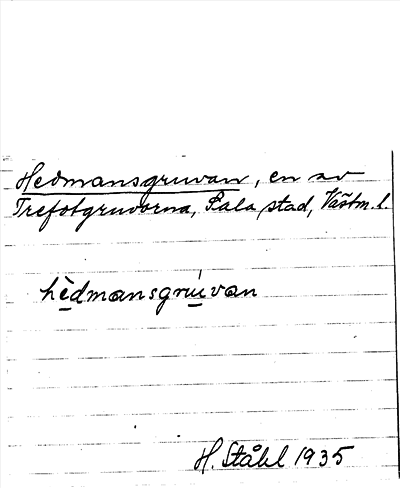 Hedmansgruvan, en av
Trefotgruvorna, Sala stad, Västm. l.
hèdmansgruívan
H. Ståhl 1935